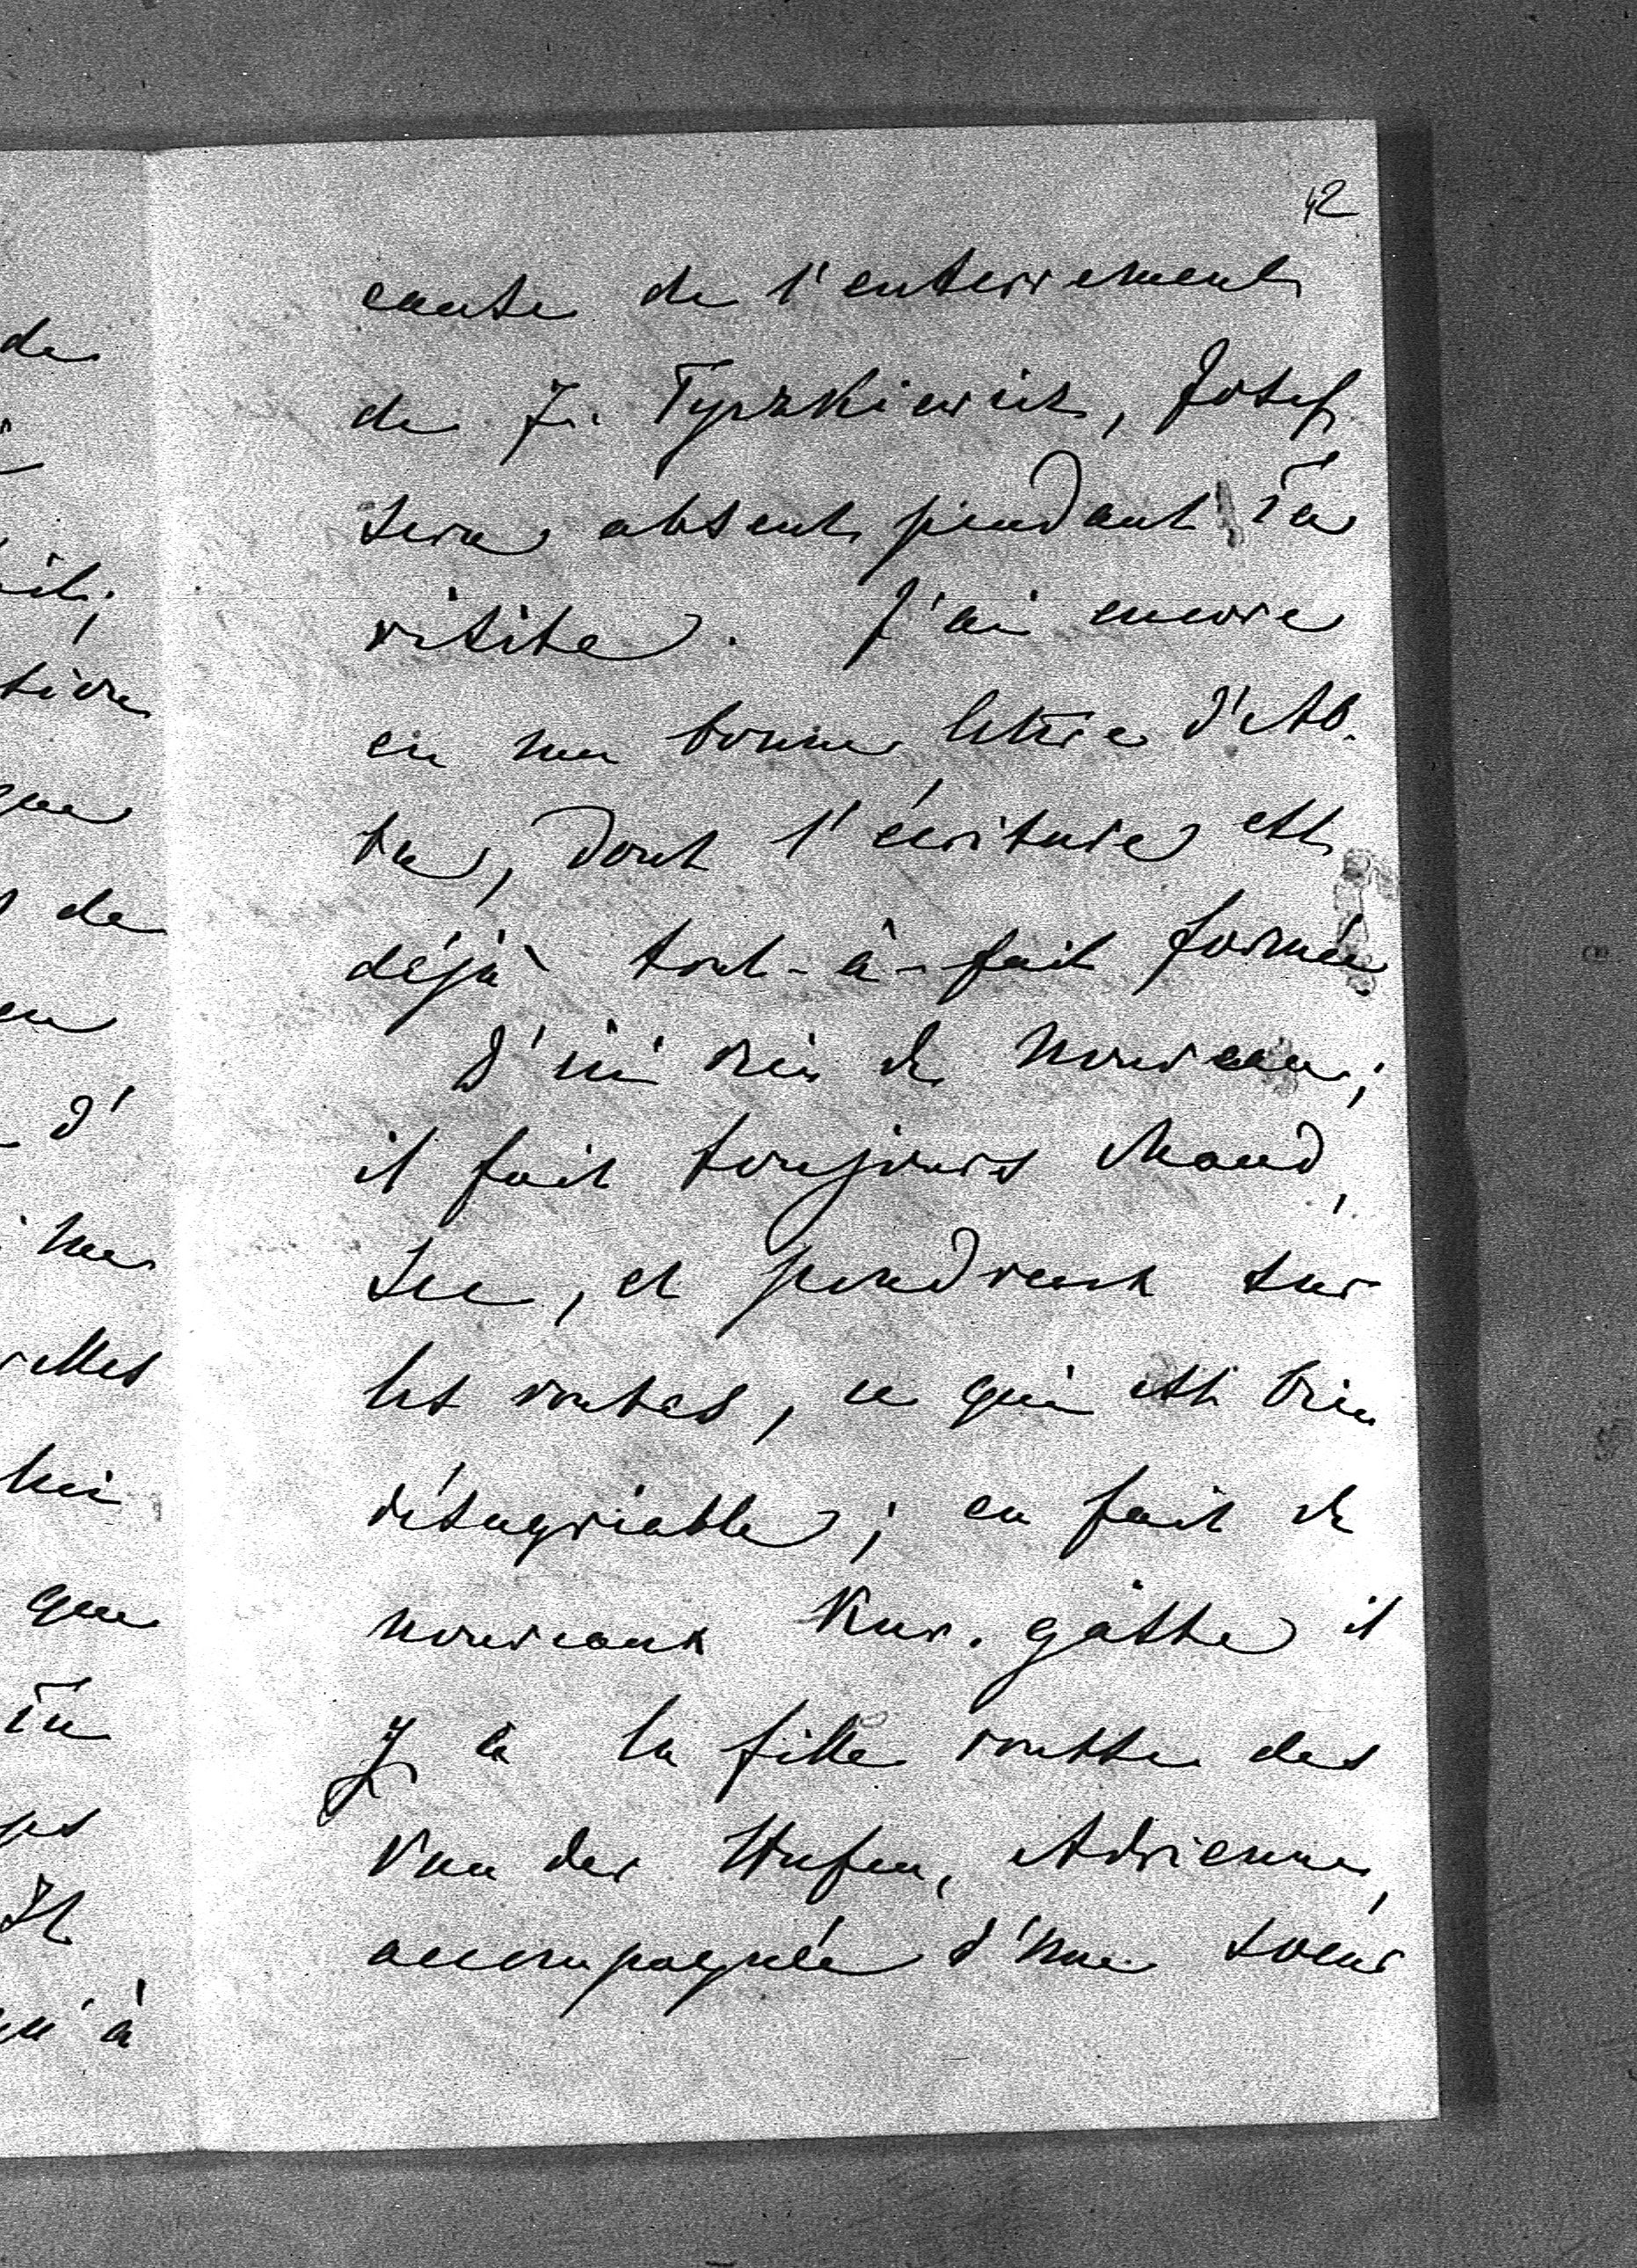 42
cause de l'enterrement
de J. Tyszkiewicz, Josef
sera absent pendant Ta
visite. J'ai encore
eu une bonne lettre d'Ab-
ba, dont l'écriture est
déjà tout-à-fait formée
D'ici rien de nouveau;
il fait toujours chaud,
sec, et poudreux sur
les routes, ce qui est bien
désagréable; en fait de
nouveaux Kur-gäste il
y a la fille rousse des
Van der Hufen, Adrienne,
accompagnée d'une soeur
de
tière
que
de
en
d'
me
elles
lui
que
Tu
Il
qu'à